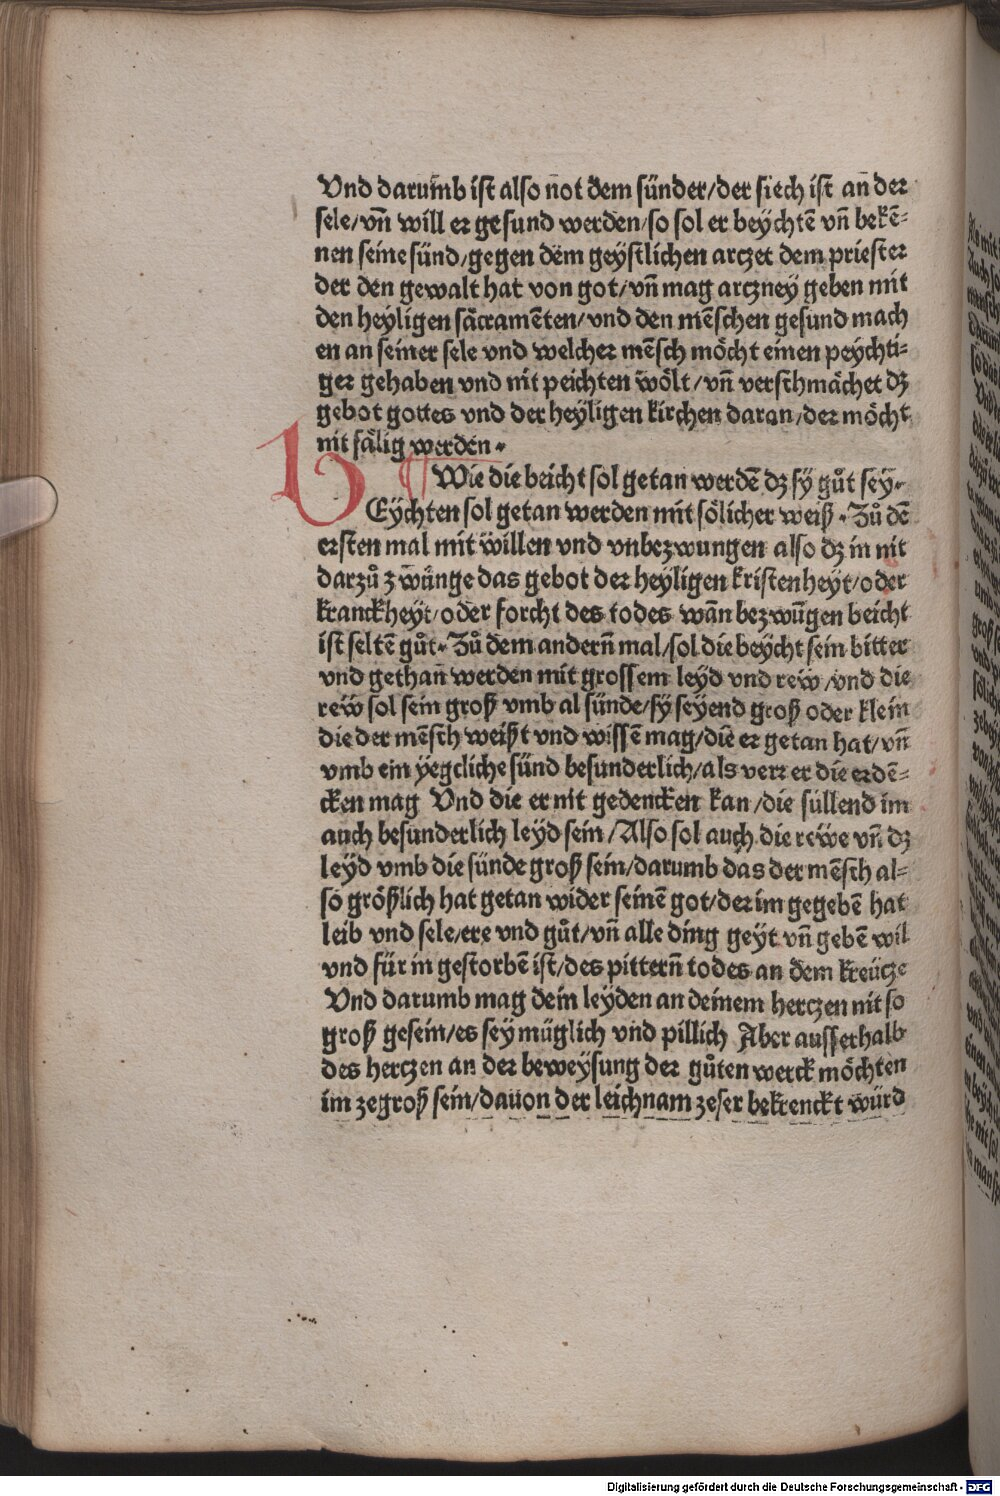 Vnd darumb ist also not dem sünder/der siech ist an der
sele/vñ will er gesund werden/so sol er beychtē vñ bekē-
nen seine sünd/gegen dem geystlichen arczet dem priester
der den gewalt hat von got/vñ mag arczney geben mit
den heyligen sacramēten/vnd den mēschen gesund mach
en an seiner sele vnd welcher mēsch möcht einen peychti-
ger gehaben vnd nit peichten wölt/vñ verschmächet dʒ
gebot gottes vnd der heyligen kirchen daran/der möcht
nit sälig werden.
¶ Wie die beicht sol getan werdē dʒ sy gůt sey.
BEychten sol getan werden mit sölicher weiß. Zů dē
ersten mal mit willen vnd vnbezwungen also dʒ in nit
darzů zwänge das gebot der heyligen kristenheyt/oder
kranckheyt/oder forcht des todes wañ bezwūgen beicht
ist seltē gůt. Zů dem anderñ mal/sol die beycht sein bitter
vnd gethañ werden mit grossem leyd vnd rew/vnd die
rew sol sein groß vmb al sünde/sy seyend groß oder klein
die der mēsch weißt vnd wissē mag/die er getan hat/vñ
vmb ein yegcliche sünd besunderlich/als verr er die erdē-
cken mag Vnd die er nit gedencken kan/die süllend im
auch besunderlich leyd sein/Also sol auch die rewe vñ dʒ
leyd vmb die sünde groß sein/darumb das der mēsch al-
so größlich hat getan wider seinē got/der im gegebē hat
leib vnd sele/ere vnd gůt/vñ alle ding geyt vñ gebē wil
vnd für in gestorbē ist/des pitterñ todes an dem kreücze
Vnd darumb mag dein leyden an deinem herczen nit so
groß gesein/es sey müglich vnd pillich Aber ausserhalb
des herczen an der beweysung der gůten werck möchten
im zegroß sein/dauon der leichnam zeser bekrenckt würd
Digitalisierung gefördert durch die Deutsche Forschungsgemeinschaft - DFG